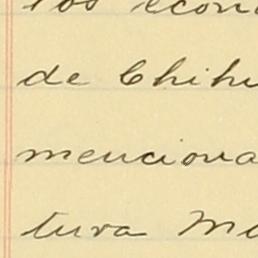 los econo
de Chihu
menciona
tura Ma